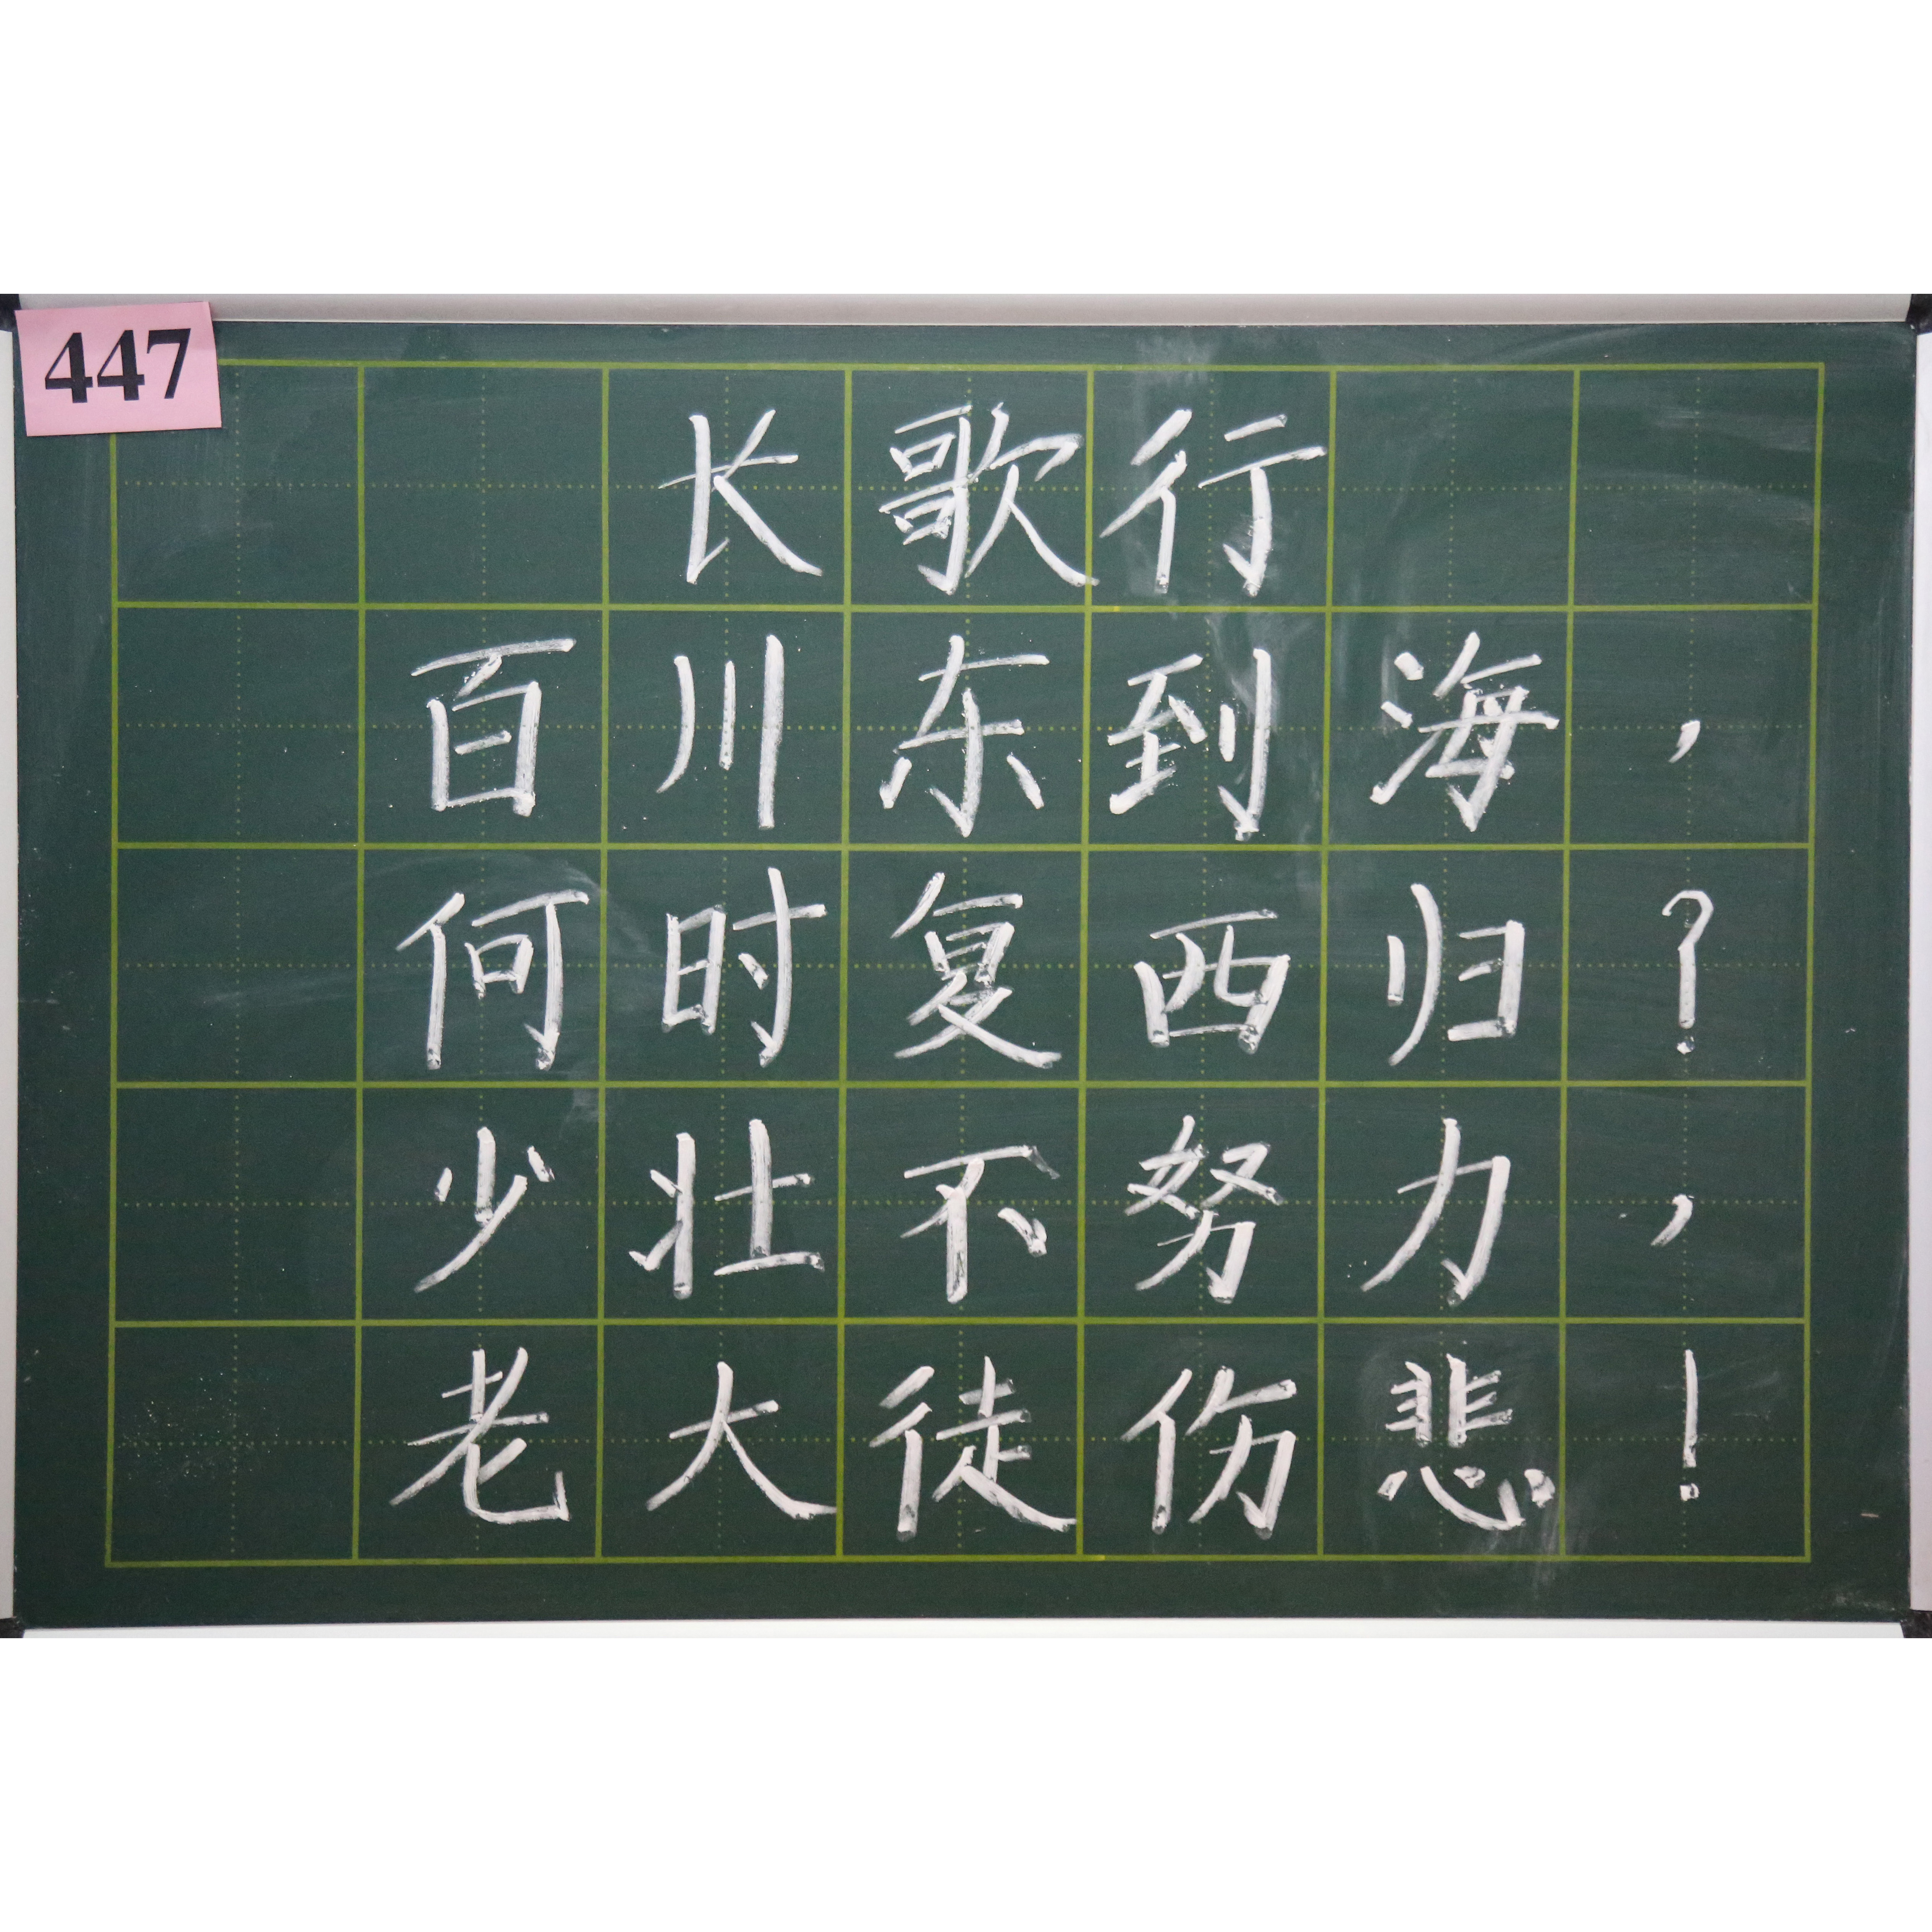 447
长歌行
百川东到海，
何时复西归？
少壮不努力，
老大徒伤悲！